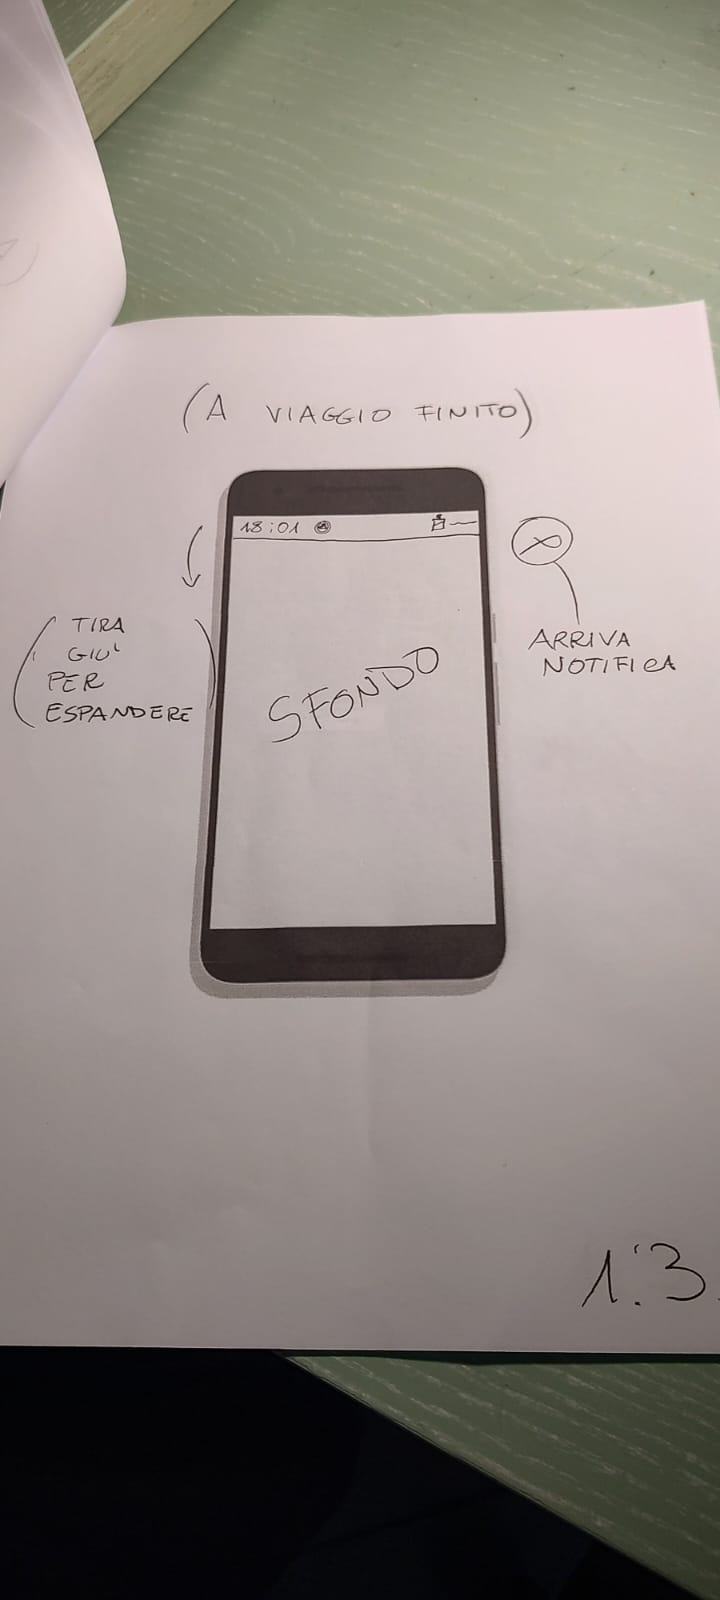 (A VIAGGIO FINITO)
18:01
(TIRA
GIU'
PER
ESPANDERE)
SFONDO
ARRIVA
NOTIFICA
1.3.